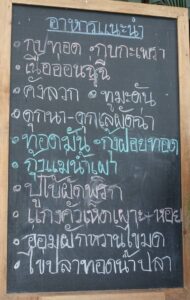 อาหารแนะนำ
กบทอด กบกะเพรา
เนื้ออ่อนฉู่ฉี่
กุ้งลวก ทูมะดัน
ดุกนา-ดุกผัดฉ่า
ทอดมัน กุ้งฝอยทอด
กุ้งแม่น้ำเผา
ปูไข่ผัดพริก
แกงคั่วเห็ดเผาะ+หอย
ผักหวานไข่มด
ไข่ปลาทอดน้ำปลา